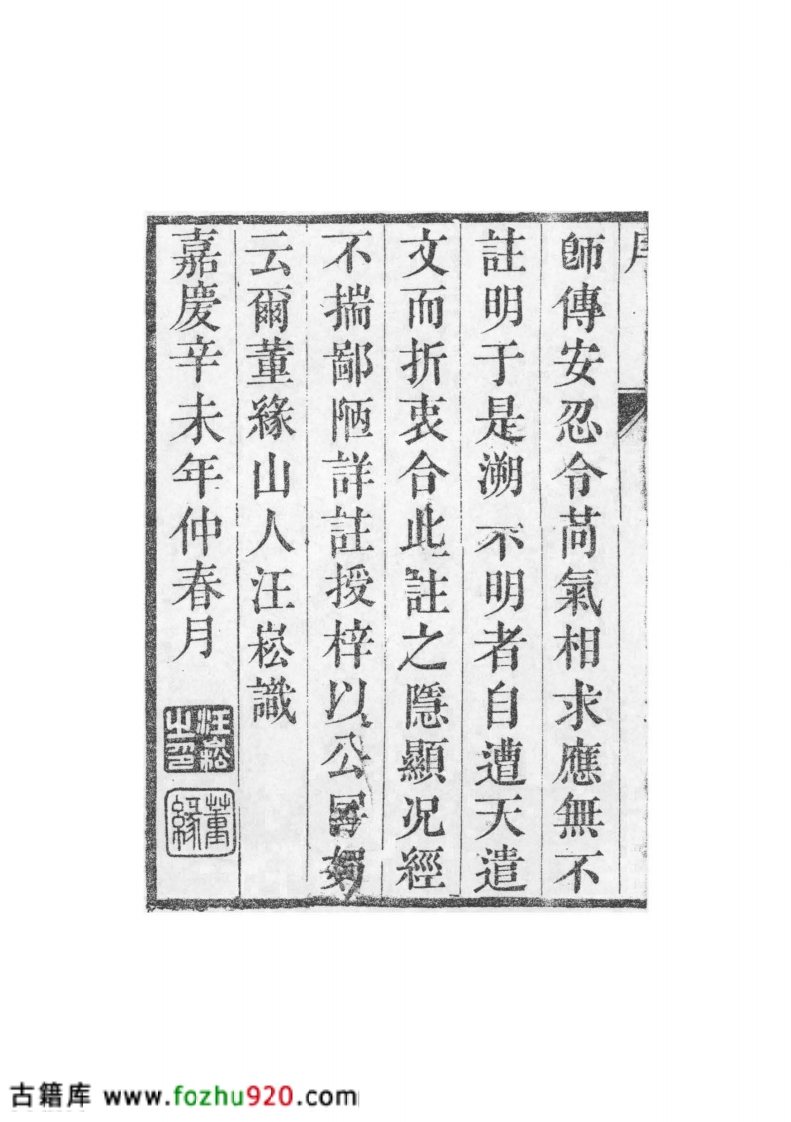 序
師傳安忍令苘氣相求應無不
註明于是溯不明者自遭天遣
文而折衷合此註之隱顯况經
不揣鄙陋詳註授梓以公
云爾董緣山人汪崧識
嘉慶辛未年仲春月
汪崧之印
董緣
古籍库 www.fozhu920.com